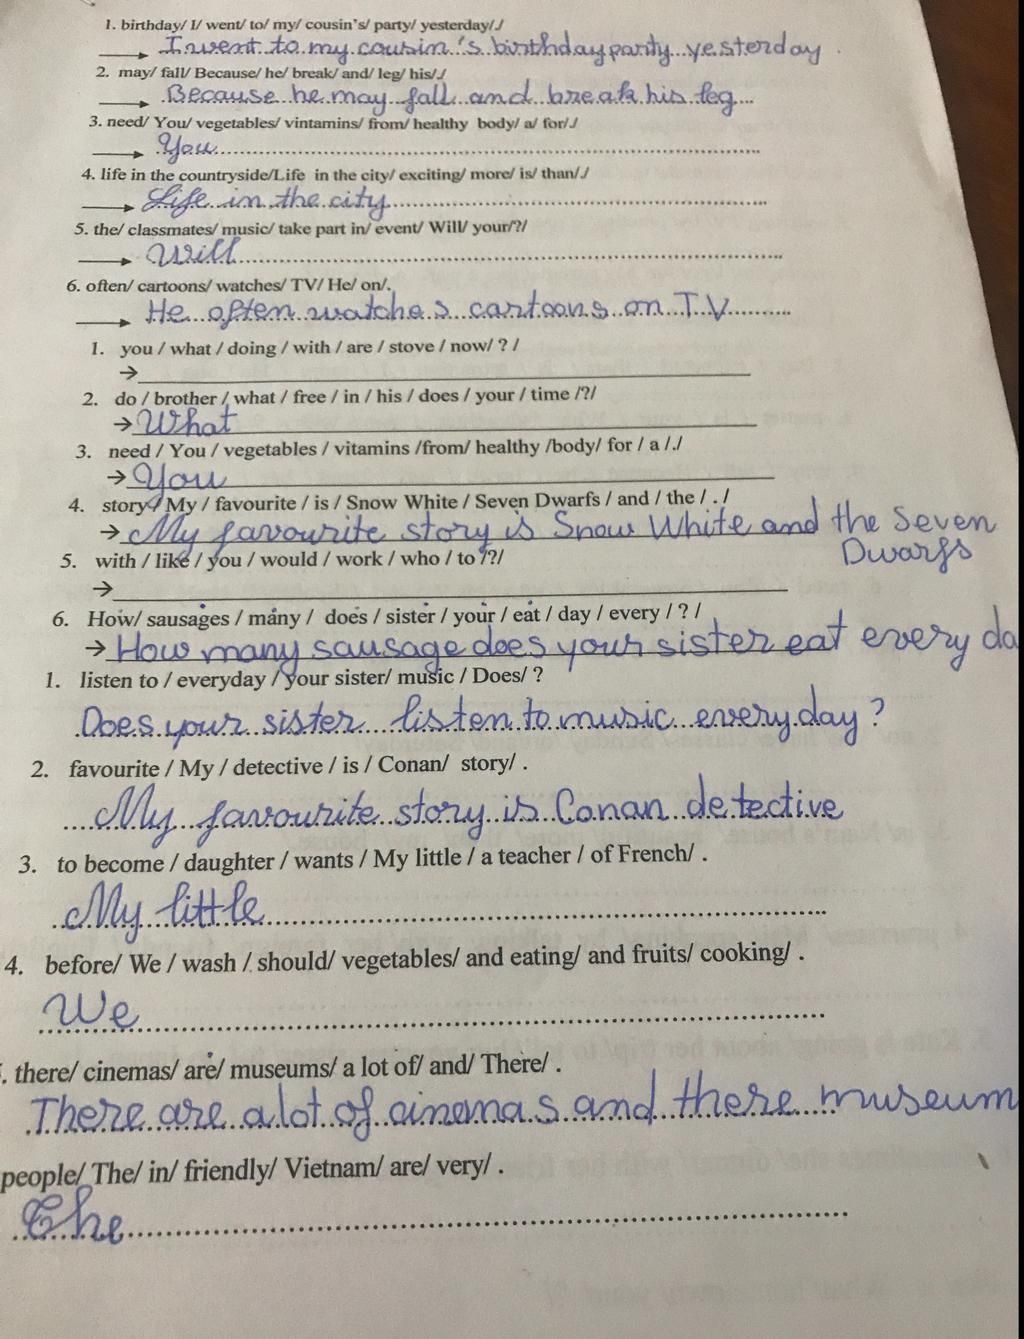 1. birthday/ I/ went/ to/ my/ cousin's/ party/ yesterday/./
I went to my cousin's birthday party yesterday.
2. may/ fall/ Because/ he/ break/ and/ leg/ his/./
Because he may fall and break his leg
3. need/ You/ vegetables/ vintamins/ from/ healthy body/ a/ for/./
You
4. life in the countryside/Life in the city/ exciting/ more/ is/ than/./
Life in the city
5. the/ classmates/ music/ take part in/ event/ Will/ your/?/
Will
6. often/ cartoons/ watches/ TV/ He/ on/.
He often watches cartoons on TV
1. you / what / doing / with / are / stove / now/ ? /
→
2. do / brother / what / free / in / his / does / your / time /?/
→ What
3. need / You / vegetables / vitamins /from/ healthy /body/ for / a /./
→ You
4. story / My / favourite / is / Snow White / Seven Dwarfs / and / the / . /
→ My favourite story is Snow White and the Seven
Dwarfs
5. with / like / you / would / work / who / to /?/
→
6. How/ sausages / many / does / sister / your / eat / day / every / ? /
→ How many sausage does your sister eat every da
1. listen to / everyday / your sister/ music / Does/ ?
Does your sister listen to music everyday?
2. favourite / My / detective / is / Conan/ story/ .
My favourite story is Conan detective
3. to become / daughter / wants / My little / a teacher / of French/ .
My little
4. before/ We / wash / should/ vegetables/ and eating/ and fruits/ cooking/ .
We
. there/ cinemas/ are/ museums/ a lot of/ and/ There/ .
There are a lot of cinemas and there museum
people/ The/ in/ friendly/ Vietnam/ are/ very/ .
The